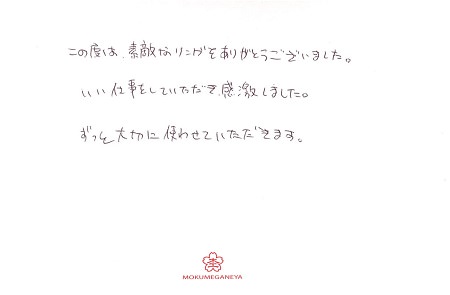 この度は、素敵なリングをありがとうございました。
いい仕事をしていただき、感激しました。
ずっと大切に使わせていただきます。
MOKUMEGANEYA